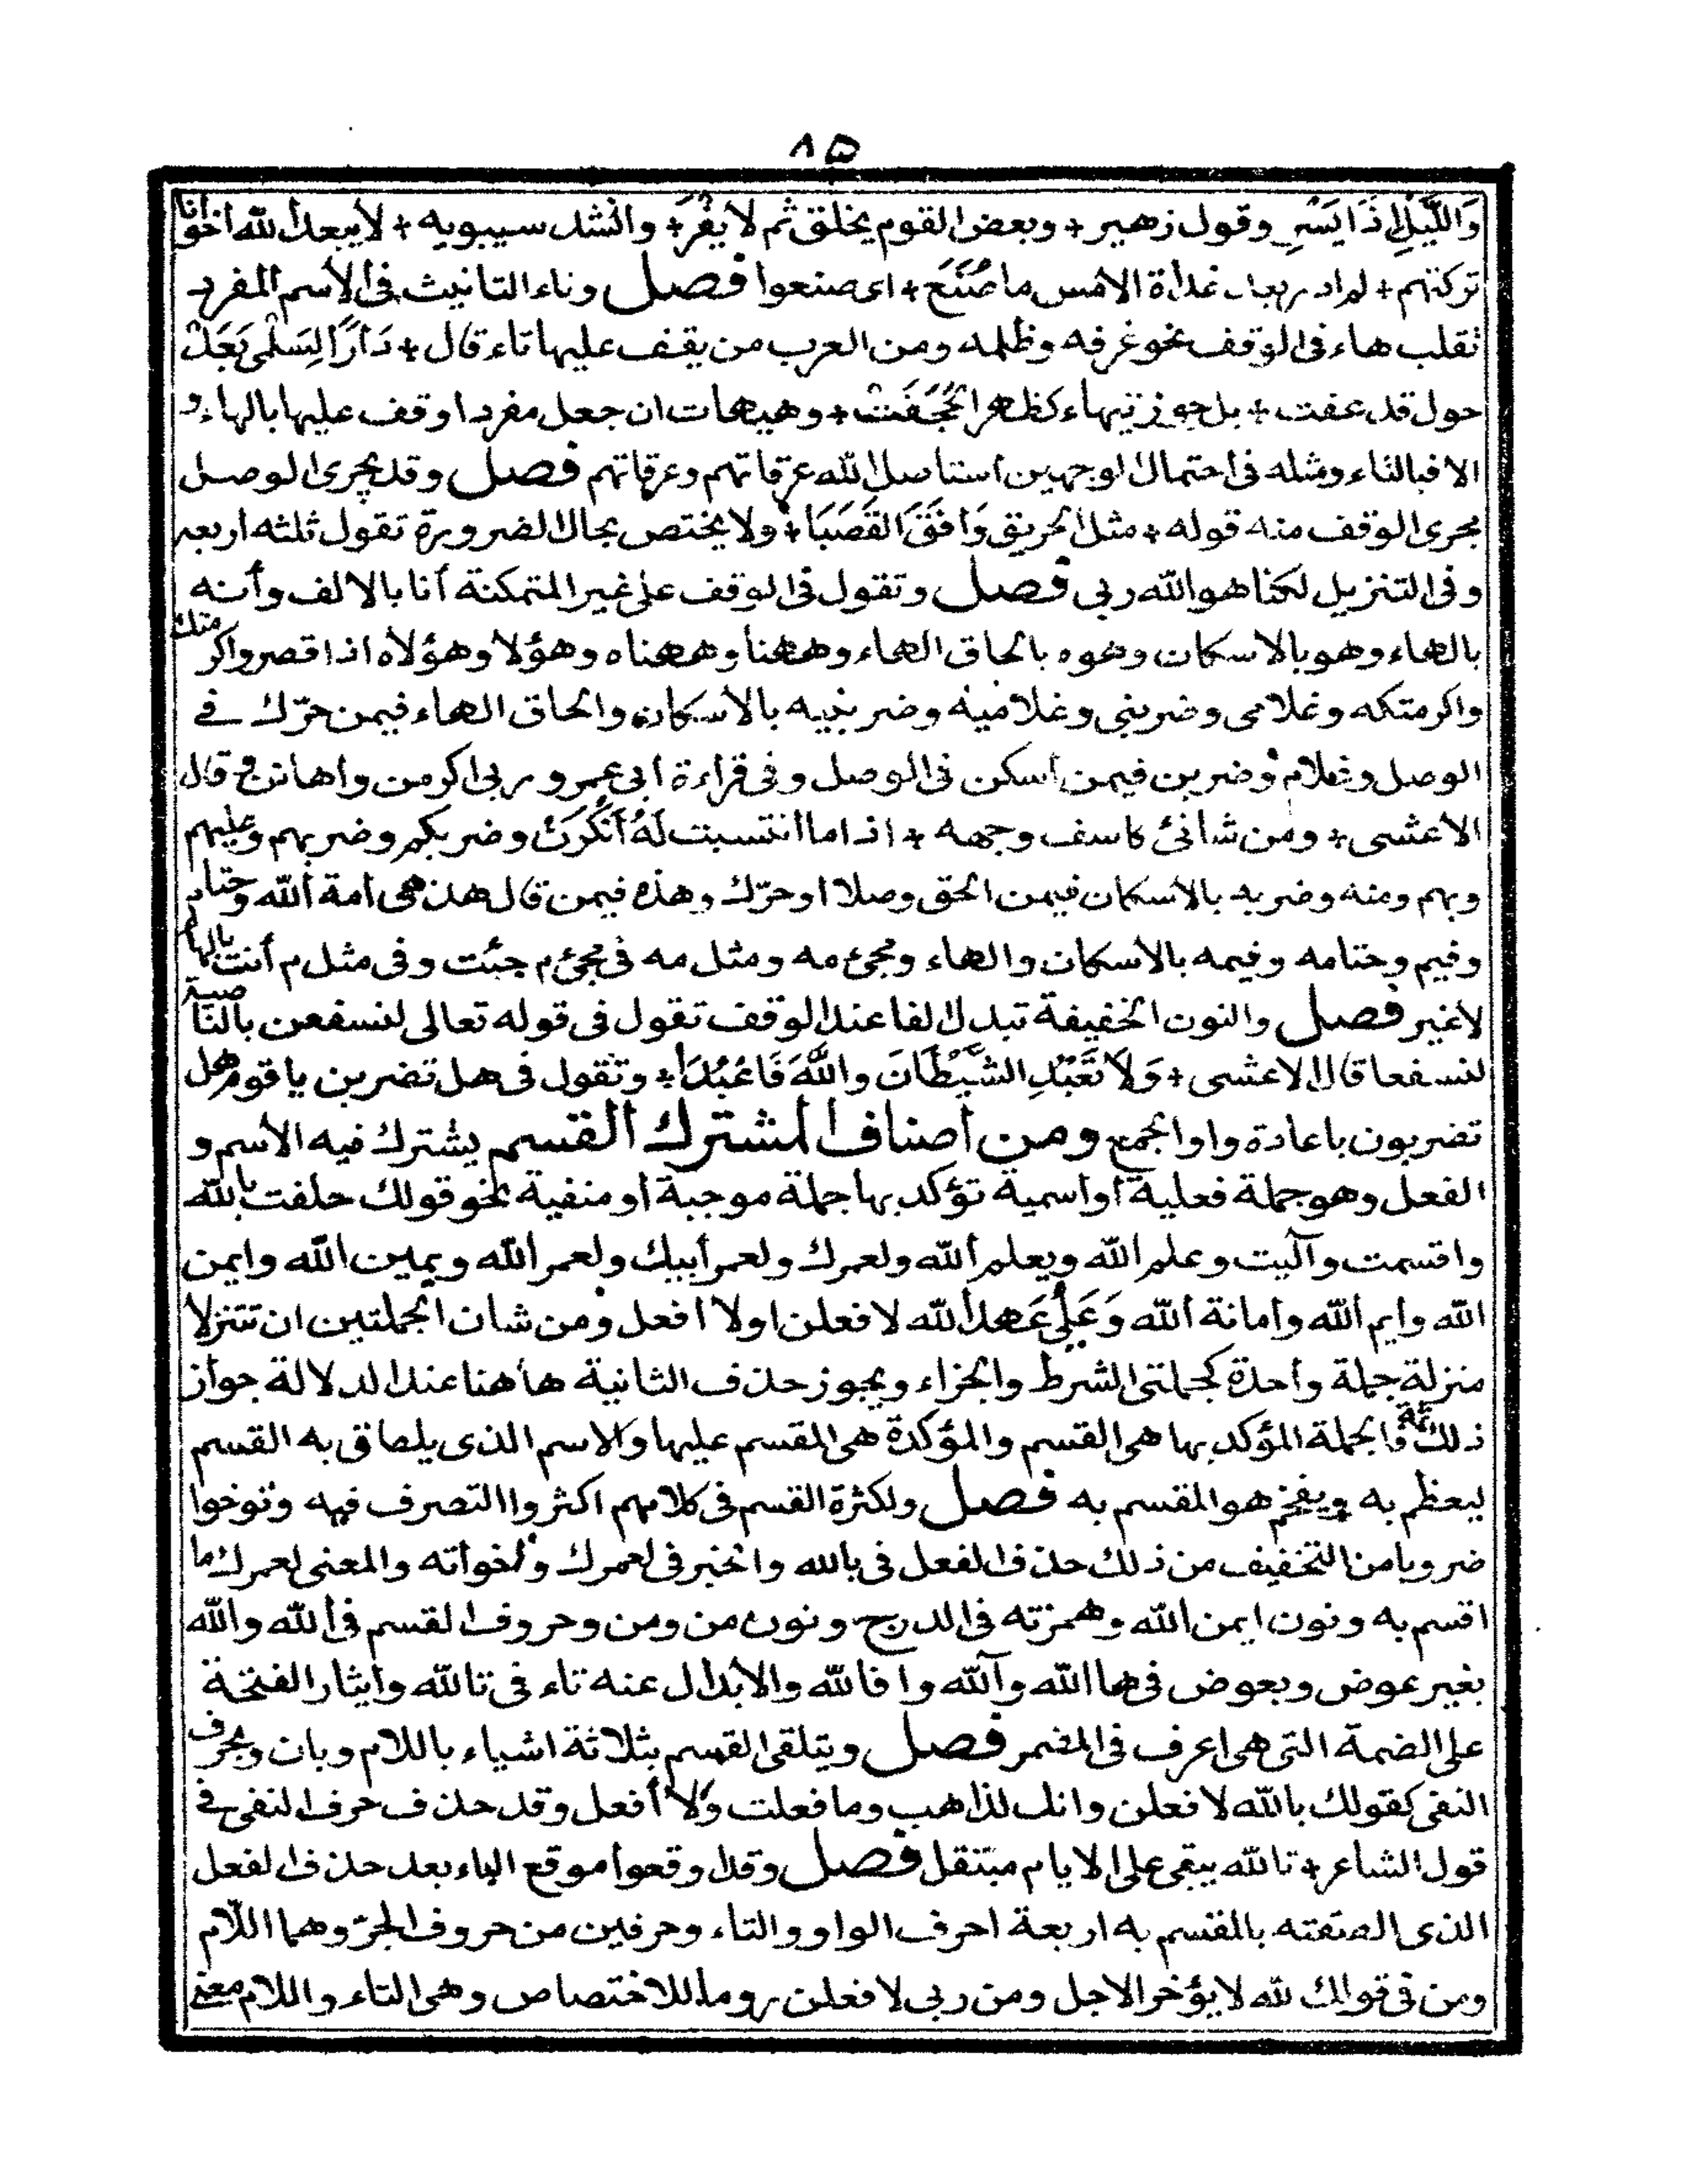 ٨٥
وَاللَّيْلِ اِذَا يَسْرِ وقول زهير + وبعض القوم يخلق ثم لا يَفْرَ + وانشد سيبويه + لا يبعد الله اخوانا
تركتهم + لم ادر بعد غداة الامس ما صَنَعَ + اى صنعوا فصل وتاء التانيث فى الاسم المفرد
تقلب هاء فى الوقف نحو غرفه وظلمه ومن العرب من يقف عليها تاء قال + دَارًا لِسَلْمٰى بَعْدَ
حول قد عفت + بل جوز تيهاء كظهر الحُجَفَتْ + وهيهات ان جعل مفردا وقف عليها بالهاء و
الا فبالتاء ومثله فى احتمال الوجهين استاصل الله عرقاتهم وعرقاتهم فصل وقد يجرى الوصل
مجرى الوقف منه قوله + مثل الحريق وَافَقَ القَصَبَا + ولا يختص بحال الضرورة تقول ثلثه اربعه
وفى التنزيل لكنا هو الله ربى فصل وتقول فى الوقف على غير المتمكنة أنا بالالف وأنه
بالهاء وهو بالاسكان وهوه بالحاق الهاء وههنا وههناه وهؤلا وهؤلاه اذا قصر واكرمتك
واكرمتكه وغلامى وضربنى وغلاميه وضربنيه بالاسكان والحاق الهاء فيمن حرّك فى
الوصل وغلام وضربن فيمن اسكن فى الوصل وفى قراءة ابى عمرو ربى اكرمن واهانن وقال
الاعشى + ومن شانئ كاسف وجهه + اذا ما انتسبت لَهُ أَنْكَرَنْ وضربكم وضربهم وعليهم
وبهم ومنه وضربه بالاسكان فيمن الحق وصلا او حرّك وهذه فيمن قال هذهى امة الله وحتام
وفيم وحتامه وفيمه بالاسكان والهاء ومجئ مه ومثل مه فى مجئ م جئت وفى مثل م أنت بالهاء
لا غير فصل والنون الخفيفة تبدل الفا عند الوقف تقول فى قوله تعالى لنسفعن بالناصية
لنسفعا قال الاعشى + وَلَا تَعْبُدِ الشَّيْطَانَ وَاللّٰهَ فَاعْبُدَا + وتقول فى هل تضربن يا قوم هل
تضربون باعادة واو الجمع ومن اصناف المشترك القسم يشترك فيه الاسم و
الفعل وهو جملة فعلية او اسمية تؤكد بها جملة موجبة او منفية نحو قولك حلفت بالله
واقسمت وآليت وعلم الله ويعلم الله ولعمرك ولعمر أبيك ولعمر الله ويمين الله وايمن
الله وايم الله وامانة الله وَعَلَىَّ عَهد الله لافعلن او لا افعل ومن شان الجملتين ان تتنزلا
منزلة جملة واحدة كجملتى الشرط والجزاء ويجوز حذف الثانية ها هنا عند الدلالة جواز
ذلك ثمة فالجملة المؤكد بها هى القسم والمؤكدة هى المقسم عليها والاسم الذى يلصق به القسم
ليعظم به ويفخم هو المقسم به فصل ولكثرة القسم فى كلامهم اكثروا التصرف فيه وتوخوا
ضروبا من التخفيف من ذلك حذف الفعل فى بالله والخبر فى لعمرك واخواته والمعنى لعمرك ما
اقسم به ونون ايمن الله وهمزته فى الدرج ونون من ومن وحروف القسم فى الله والله
بغير عوض وبعوض فى ها الله وآلله وا فالله والابدال عنه تاء فى تالله وايثار الفتحة
على الضمة التى هى اعرف فى المضمر فصل ويتلقى القسم بثلاثة اشياء باللام وبان وبحرف
النفى كقولك بالله لافعلن وانك لذاهب وما فعلت ولا أفعل وقد حذف حرف النفى فى
قول الشاعر + تالله يبقى على الايام مبتقل فصل وقد اوقعوا موقع الباء بعد حذف الفعل
الذى الصقته بالمقسم به اربعة احرف الواو والتاء وحرفين من حروف الجرّ وهما اللّام
ومن فى قولك لله لا يؤخر الاجل ومن ربى لافعلن روما للاختصاص وهى التاء واللام معنى